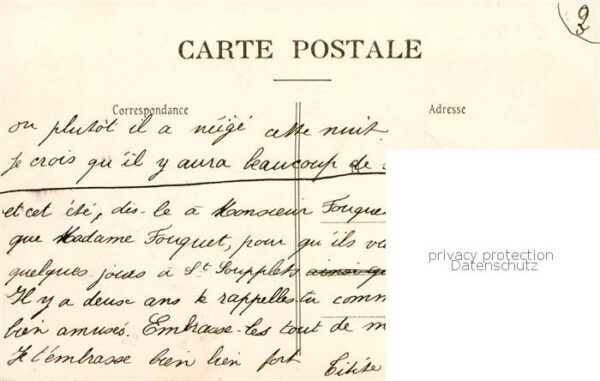 2
CARTE POSTALE
Correspondance
Adresse
ou plutôt il a neigé cette nuit.
Je crois qu'il y aura beaucoup de
et cet été, dis-le à Monsieur Fouque
que Madame Fouquet, pour qu'ils
quelques jours à St Soupplets ainsi
Il y a deux ans te rappelles-tu comm
bien amusés. Embrasse-les tout de m
Je t'embrasse bien bien fort
Titite
privacy protection
Datenschutz